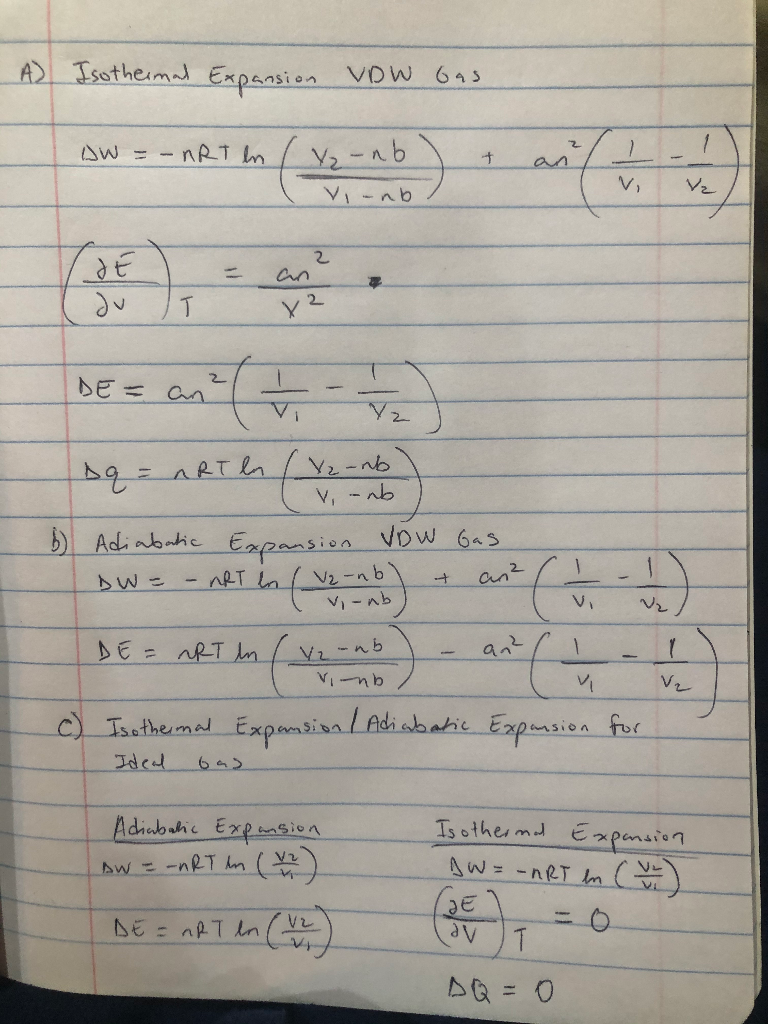 A) Isothermal Expansion VDW Gas
ΔW = -nRT ln ((V2-nb)/(V1-nb)) + an²(1/V1 - 1/V2)
(∂E/∂V)T = an²/V²
ΔE = an²(1/V1 - 1/V2)
Δq = nRT ln ((V2-nb)/(V1-nb))
b) Adiabatic Expansion VDW Gas
ΔW = -nRT ln ((V2-nb)/(V1-nb)) + an²(1/V1 - 1/V2)
ΔE = nRT ln ((V2-nb)/(V1-nb)) - an²(1/V1 - 1/V2)
C) Isothermal Expansion/Adiabatic Expansion for
Ideal Gas
Adiabatic Expansion
ΔW = -nRT ln (V2/V1)
ΔE = nRT ln (V2/V1)
Isothermal Expansion
ΔW = -nRT ln (V2/V1)
(∂E/∂V)T = 0
ΔQ = 0